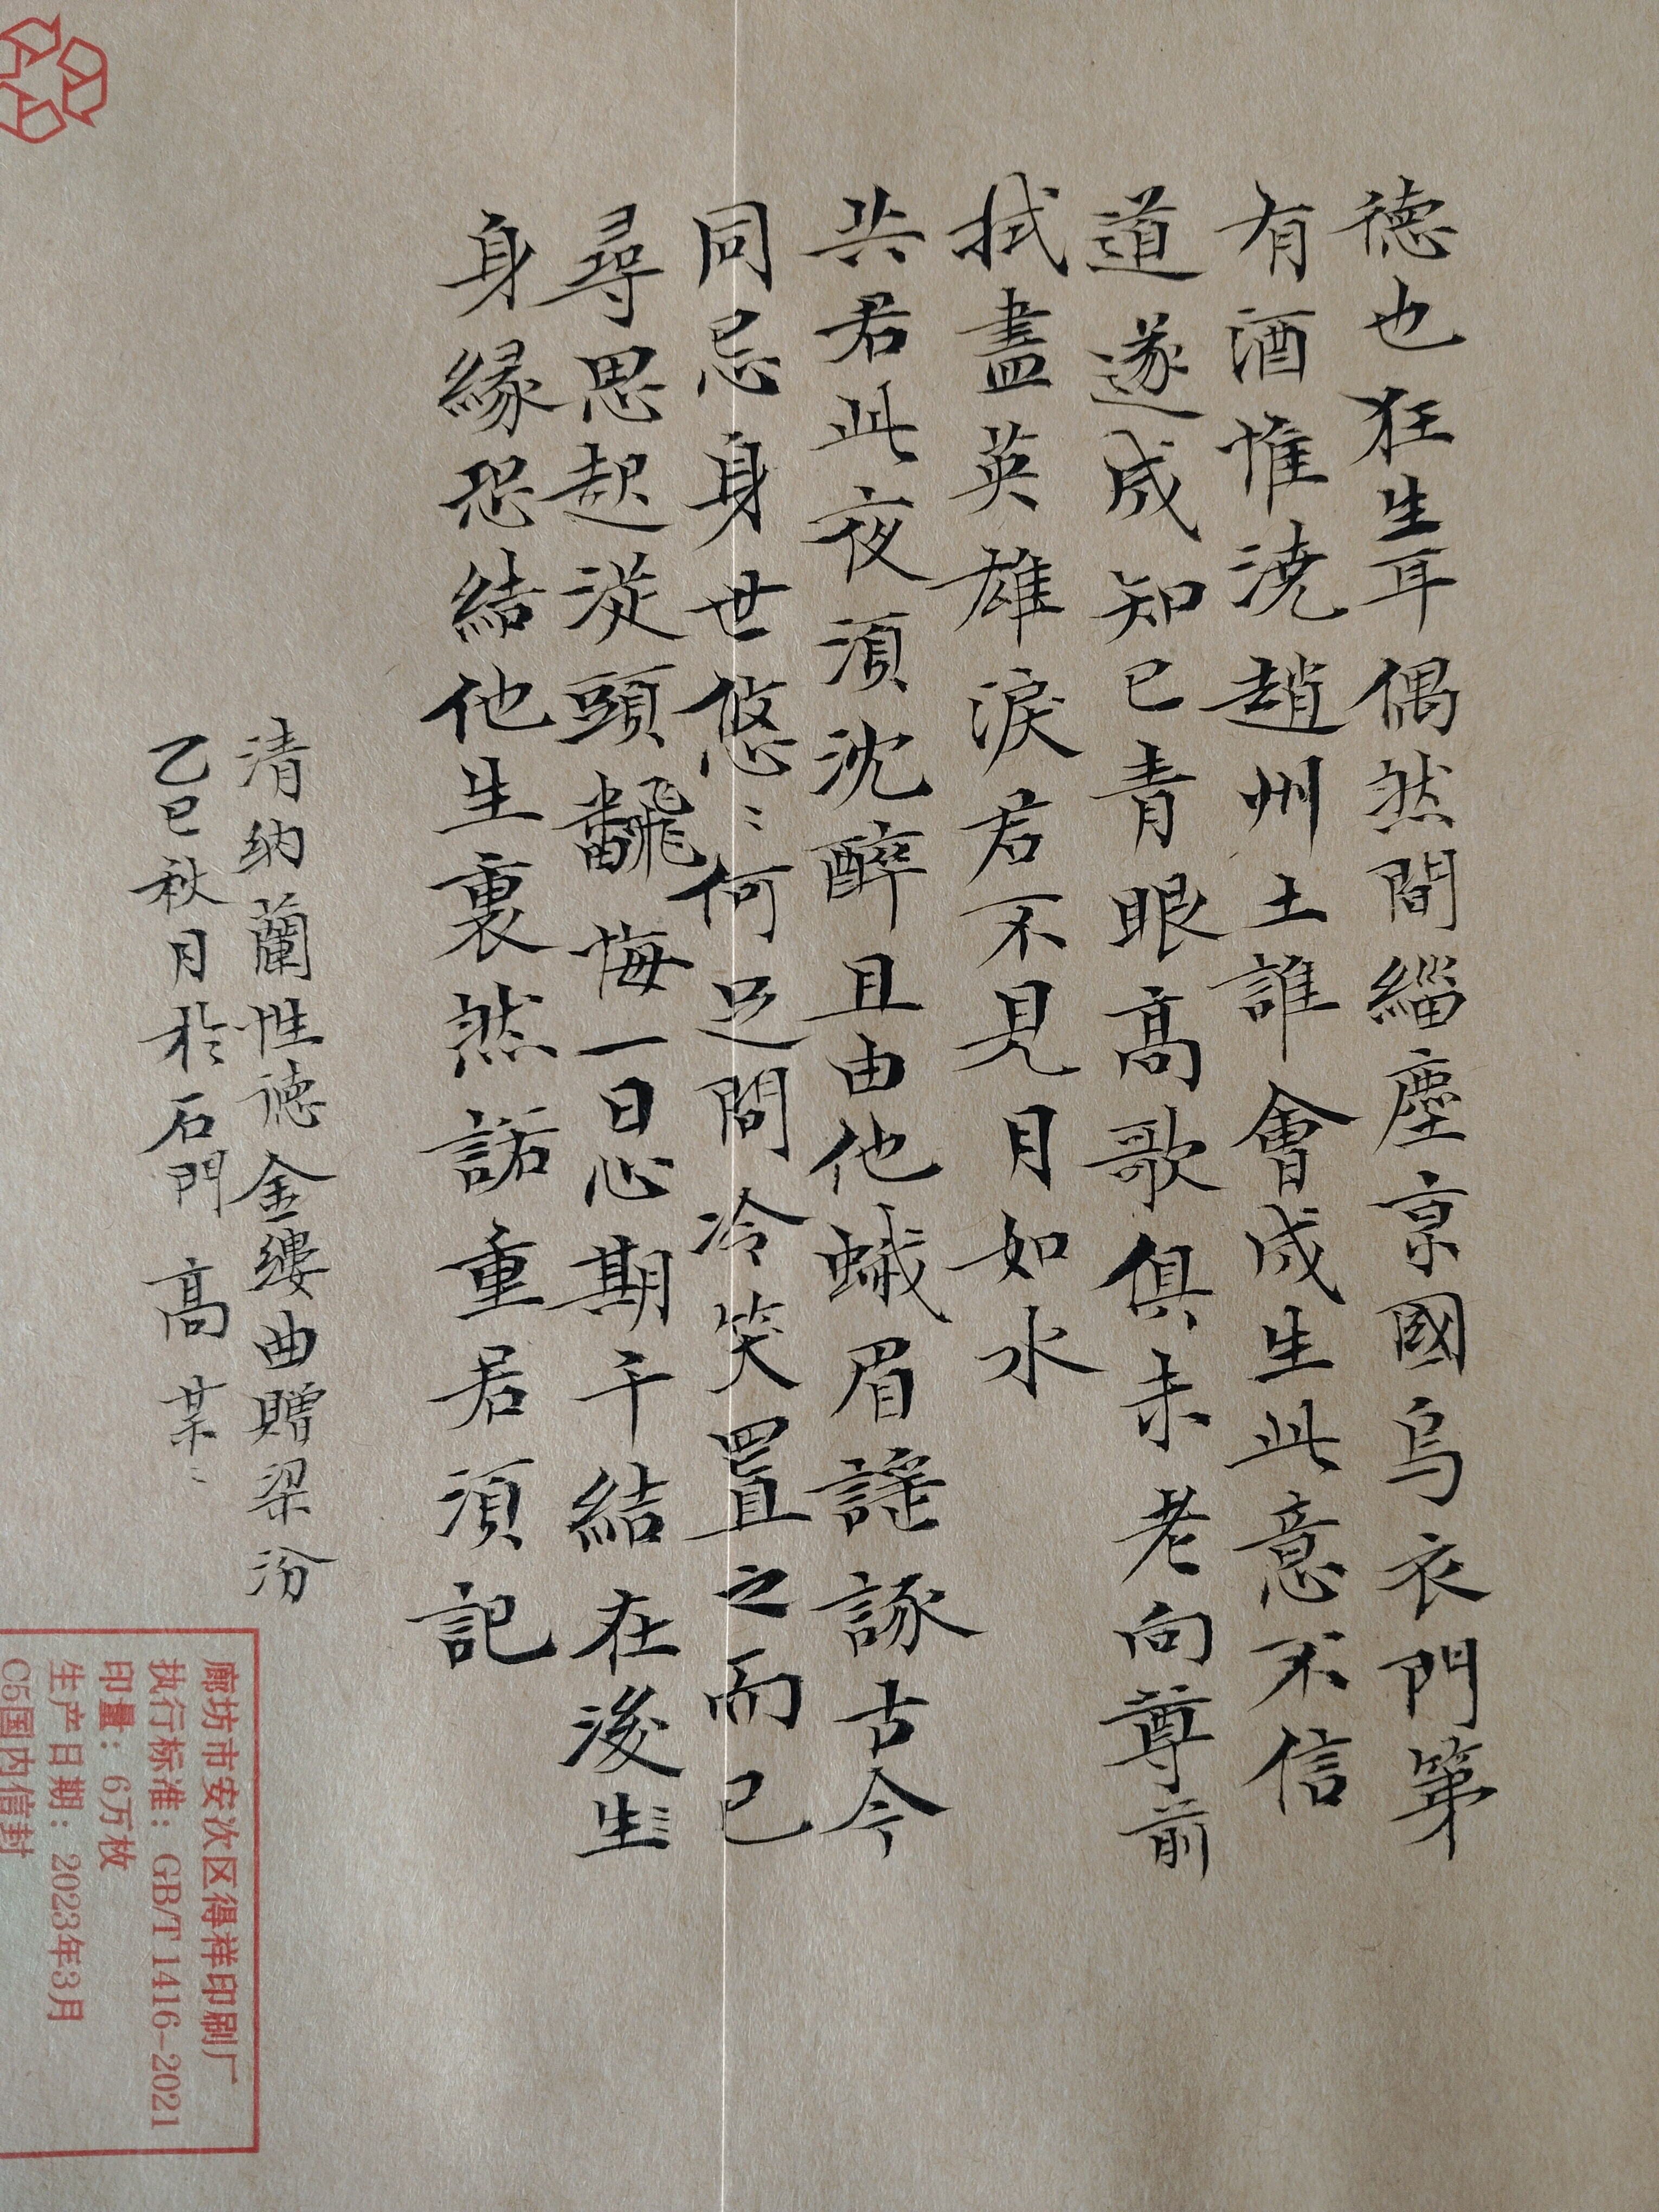 德也狂生耳偶然間緇塵京國烏衣門第
有酒惟澆趙州土誰會成生此意不信
道遂成知已青眼高歌俱未老向尊前
拭盡英雄淚君不見月如水
共君此夜須沈醉且由他蛾眉謠諑古今
同忌身世悠〻何足問冷笑置之而已
尋思起從頭翻悔一日心期千結在後生
身緣恐結他生裏然諾重君須記
清納蘭性德金縷曲贈梁汾
乙巳秋月於石門 高某〻
廊坊市安次区得祥印刷厂
执行标准：GB/T 1416-2021
印量：6万枚
生产日期：2023年3月
C5国内信封